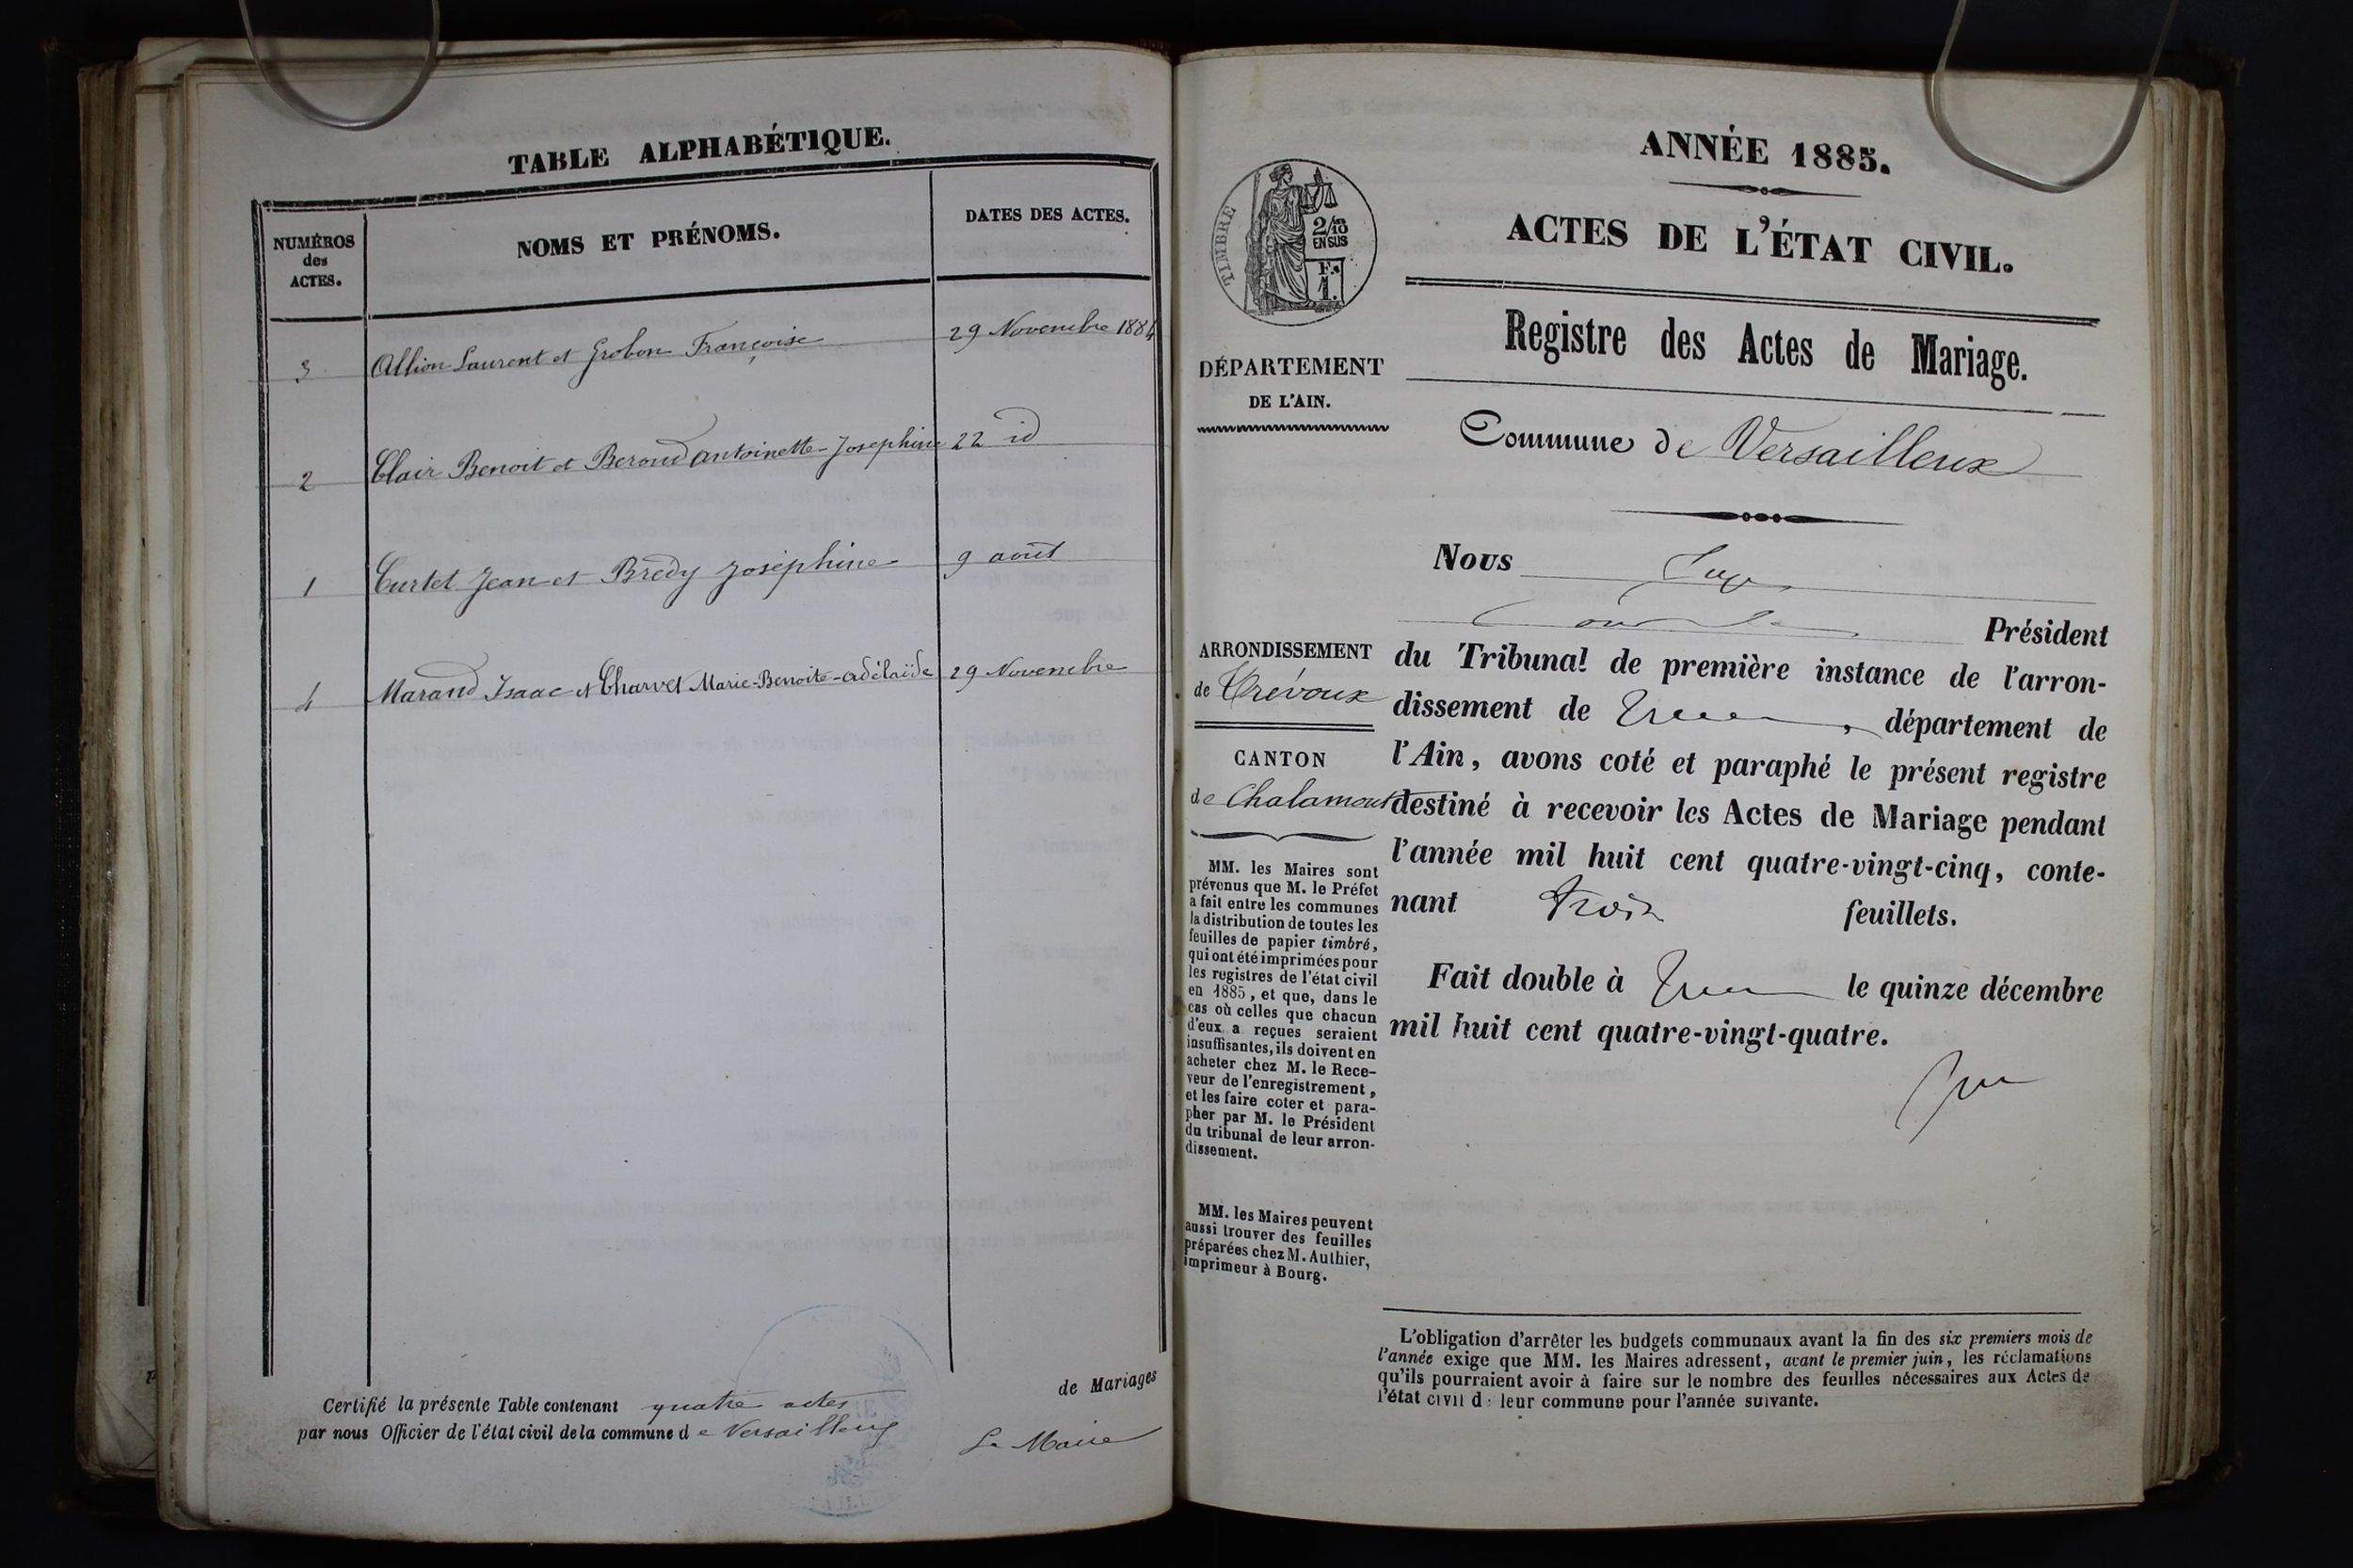 TABLE ALPHABÉTIQUE.
NUMÉROS
des
ACTES.
NOMS ET PRÉNOMS.
DATES DES ACTES.
3 Allion Laurent et Grobon Françoise 29 Novembre 1884
2 Clair Benoit et Beroud antoinette-Josephine 22 id
1 Curtet Jean et Bredy Joséphine 9 août
4 Marand Isaac et Charvet Marie-Benoite-adélaïde 29 Novembre
de Mariages
Certifié la présente Table contenant quatre actes
par nous Officier de l'état civil de la commune de Versailleux
Le Maire
ANNÉE 1885.
ACTES DE L'ÉTAT CIVIL.
TIMBRE
2/10
EN SUS
F.
1.
Registre des Actes de Mariage.
DÉPARTEMENT
DE L'AIN.
Commune de Versailleux
ARRONDISSEMENT
de Trévoux
CANTON
de Chalamont
MM. les Maires sont
prévenus que M. le Préfet
a fait entre les communes
la distribution de toutes les
feuilles de papier timbré,
qui ont été imprimées pour
les registres de l'état civil
en 1885, et que, dans le
cas où celles que chacun
d'eux a reçues seraient
insuffisantes, ils doivent en
acheter chez M. le Rece-
veur de l'enregistrement,
et les faire coter et para-
pher par M. le Président
du tribunal de leur arron-
dissement.
MM. les Maires peuvent
aussi trouver des feuilles
préparées chez M. Authier,
imprimeur à Bourg.
Nous
Président
du Tribunal de première instance de l'arron-
dissement de , département de
l'Ain, avons coté et paraphé le présent registre
destiné à recevoir les Actes de Mariage pendant
l'année mil huit cent quatre-vingt-cinq, conte-
nant trois feuillets.
Fait double à le quinze décembre
mil huit cent quatre-vingt-quatre.
L'obligation d'arrêter les budgets communaux avant la fin des six premiers mois de
l'année exige que MM. les Maires adressent, avant le premier juin, les réclamations
qu'ils pourraient avoir à faire sur le nombre des feuilles nécessaires aux Actes de
l'état civil de leur commune pour l'année suivante.